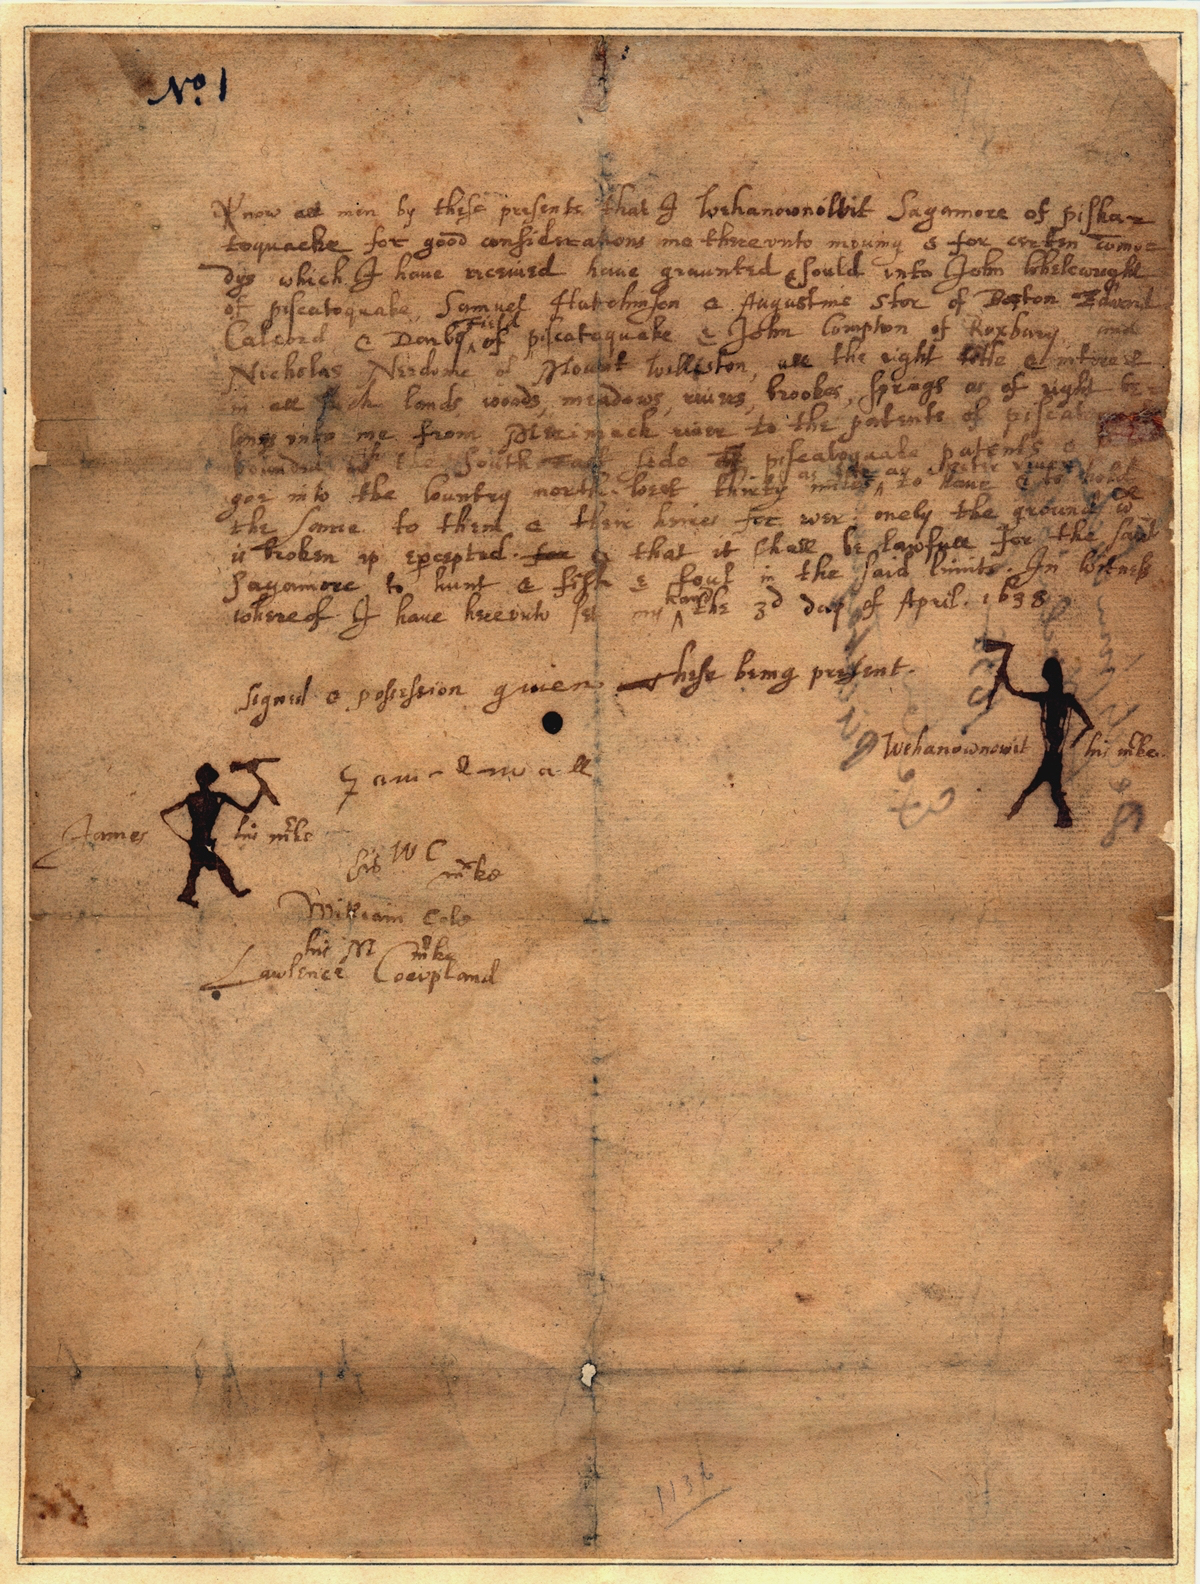 No. 1
Know all men by these presents that I Wehanownowit Sagamore of piska-
toquacke for good considerations me therevnto mouing & for certen como-
dys which I haue receiued haue graunted & sould vnto John Whelewright
of piscatoquake, Samuel Hutchinson & Augustine Stor of Boston Edward
Calcord & Darby Field of piscatoquake & John Compton of Roxbury and
Nicholas Needome of Mount Walliston, all the right title & interest
in all such lands, woods, meadows, riuers, brookes, springs as of right be-
longs vnto me from Merimack riuer to the patents of piscatoquake
bounded wth the South East side of piscatoquake patents & so to
goe into the Country north West thirty miles as far as oyster riuer to haue & to hold
the same to them & their heires for euer, onely the ground wch
is broken vp excepted. & that it shall be lawfull for the said
Sagamore to hunt & fish & foul in the said limits. In Witness
whereof I haue herevnto set my hand the 3d day of April. 1638
Signed & possession giuen these being present.
Wehanownowit his mke.
James his mke
his W C mke
William Cole
his M mke
Lawlence Coevpland
1136